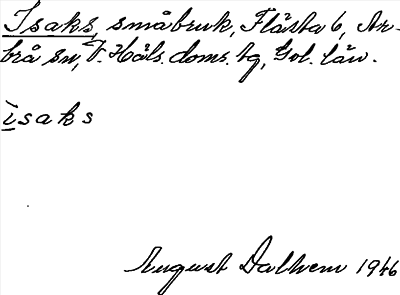 Isaks, småbruk, Flästa 6, Ar-
brå sn, V. Häls. doms. tg, Gvl. län.
ìsaks
August Dalhem 1946